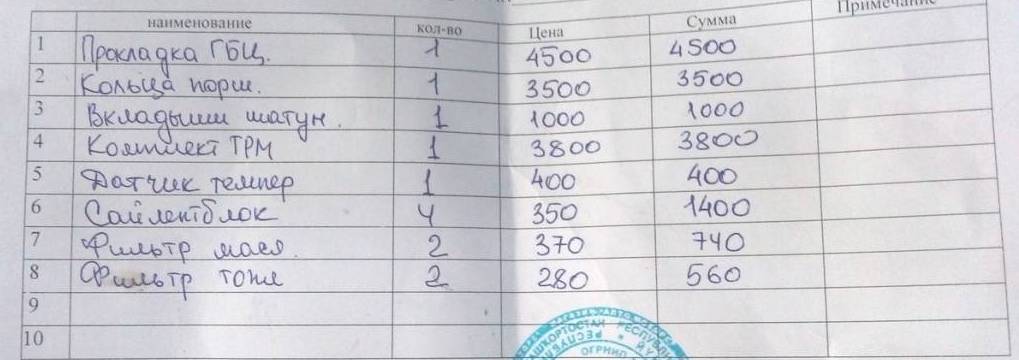 наименование кол-во Цена Сумма Примечание
1 Прокладка ГБЦ. 1 4500 4500
2 Кольца порш. 1 3500 3500
3 Вкладыши шатун. 1 1000 1000
4 Комплект ГРМ 1 3800 3800
5 Датчик темпер 1 400 400
6 Сайлентблок 4 350 1400
7 Фильтр масл. 2 370 740
8 Фильтр топл 2 280 560
9
10
БАШКОРТОСТАН РЕСПУБЛИ
ОГРНИП